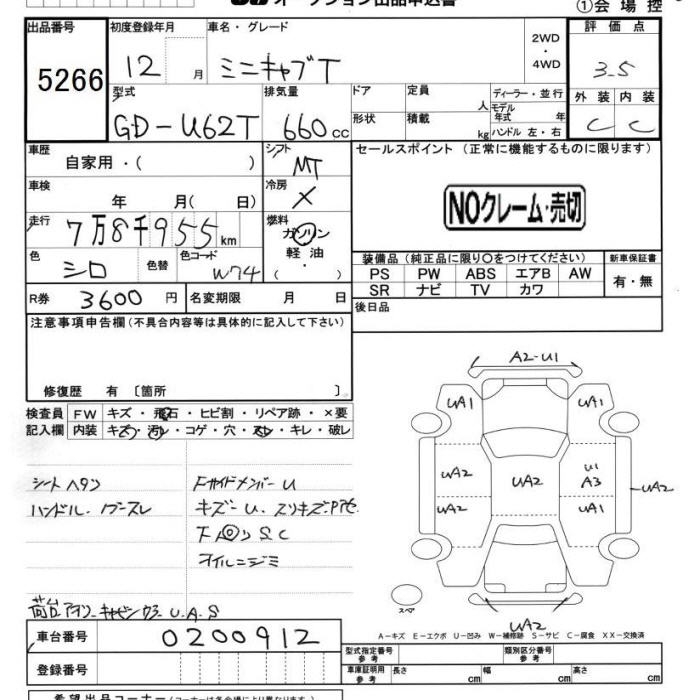 ①会場控
出品番号 初度登録年月 車名・グレード 2WD・4WD 評価点
5266 12月 ミニキャブT 3.5
型式 排気量 ドア 定員 人 ディーラー・並行 外装 内装
GD-U62T 660cc 形状 積載 kg モデル年式 年 ハンドル 左・右 C C
車歴 自家用・( ) シフト MT セールスポイント (正常に機能するものに限ります)
車検 年 月( 日) 冷房 ×
NOクレーム・売切
走行 7万8千955km 燃料 ガソリン・軽油・( )
色 シロ 色替 色コード W74
装備品(純正品に限り○をつけてください) 新車保証書
PS PW ABS エアB AW 有・無
SR ナビ TV カワ
R券 3600円 名変期限 月 日 後日品
注意事項申告欄(不具合内容等は具体的に記入して下さい)
修復歴 有 〔箇所 〕
検査員記入欄 FW キズ・飛石・ヒビ割・リペア跡・×要
内装 キズ・汚レ・コゲ・穴・スレ・キレ・破レ
シートヘタリ
ハンドル・
FサイドメンバーU
キズ-U.
S C
オイルニジミ
U.A.S
A2-U1
UA1 UA1
UA2 UA2 U1 A3 UA2
UA2 UA1
スペア
UA2
A-キズ E-エクボ U-凹み W-補修跡 S-サビ C-腐食 XX-交換済
車台番号 0200912
登録番号
型式指定番号 参考 類別区分番号 参考
車庫証明用 参考 長さ cm 幅 cm 高さ cm